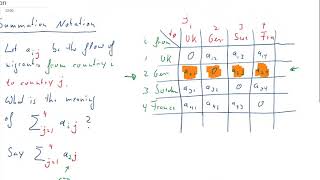 Summation Notation
Let aij be the flow of
migrants from country i
to country j.
What is the meaning
of ∑⁴j=1 aij ?
Say ∑⁴j=1 a2j
i from to j 1 2 3 4
UK Ger Swe Fra
1 UK 0 a12 a13 a14
2 Ger a21 0 a23 a24
3 Sweden a31 a32 0 a34
4 France a41 a42 a43 0